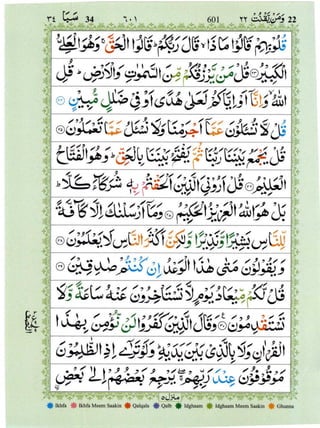 ٣٤ سَبَا 34 ٦٠١ 601 وَمَنْ يَّقْنُتْ ٢٢ 22
قُلُوْبِهِمْ قَالُوْا مَاذَا ۙ قَالَ رَبُّكُمْ ؕ قَالُوا الْحَقَّ ۚ وَهُوَ الْعَلِیُّ
الْكَبِیْرُ ﴿٢٣﴾ قُلْ مَنْ یَّرْزُقُكُمْ مِّنَ السَّمٰوٰتِ وَالْاَرْضِ ؕ قُلِ
اللّٰهُ ۙ وَاِنَّاۤ اَوْ اِیَّاكُمْ لَعَلٰی هُدًی اَوْ فِیْ ضَلٰلٍ مُّبِیْنٍ ﴿٢٤﴾
قُلْ لَّا تُسْـَٔلُوْنَ عَمَّاۤ اَجْرَمْنَا وَلَا نُسْـَٔلُ عَمَّا تَعْمَلُوْنَ ﴿٢٥﴾
قُلْ یَجْمَعُ بَیْنَنَا رَبُّنَا ثُمَّ یَفْتَحُ بَیْنَنَا بِالْحَقِّ ؕ وَهُوَ الْفَتَّاحُ
الْعَلِیْمُ ﴿٢٦﴾ قُلْ اَرُوْنِیَ الَّذِیْنَ اَلْحَقْتُمْ بِهٖ شُرَكَآءَ كَلَّا ؕ
بَلْ هُوَ اللّٰهُ الْعَزِیْزُ الْحَكِیْمُ ﴿٢٧﴾ وَمَاۤ اَرْسَلْنٰكَ اِلَّا كَآفَّةً
لِّلنَّاسِ بَشِیْرًا وَّنَذِیْرًا وَّلٰكِنَّ اَكْثَرَ النَّاسِ لَا یَعْلَمُوْنَ ﴿٢٨﴾
وَیَقُوْلُوْنَ مَتٰی هٰذَا الْوَعْدُ اِنْ كُنْتُمْ صٰدِقِیْنَ ﴿٢٩﴾
قُلْ لَّكُمْ مِّیْعَادُ یَوْمٍ لَّا تَسْتَاْخِرُوْنَ عَنْهُ سَاعَةً وَّلَا
تَسْتَقْدِمُوْنَ ﴿٣٠﴾ وَقَالَ الَّذِیْنَ كَفَرُوْا لَنْ نُّؤْمِنَ بِهٰذَا
الْقُرْاٰنِ وَلَا بِالَّذِیْ بَیْنَ یَدَیْهِ ؕ وَلَوْ تَرٰۤی اِذِ الظّٰلِمُوْنَ
مَوْقُوْفُوْنَ عِنْدَ رَبِّهِمْ ۖۚ یَرْجِعُ بَعْضُهُمْ اِلٰی بَعْضِ
منزل ٥
Ikhfa Ikhfa Meem Saakin Qalqala Qalb Idghaam Idghaam Meem Saakin Ghunna